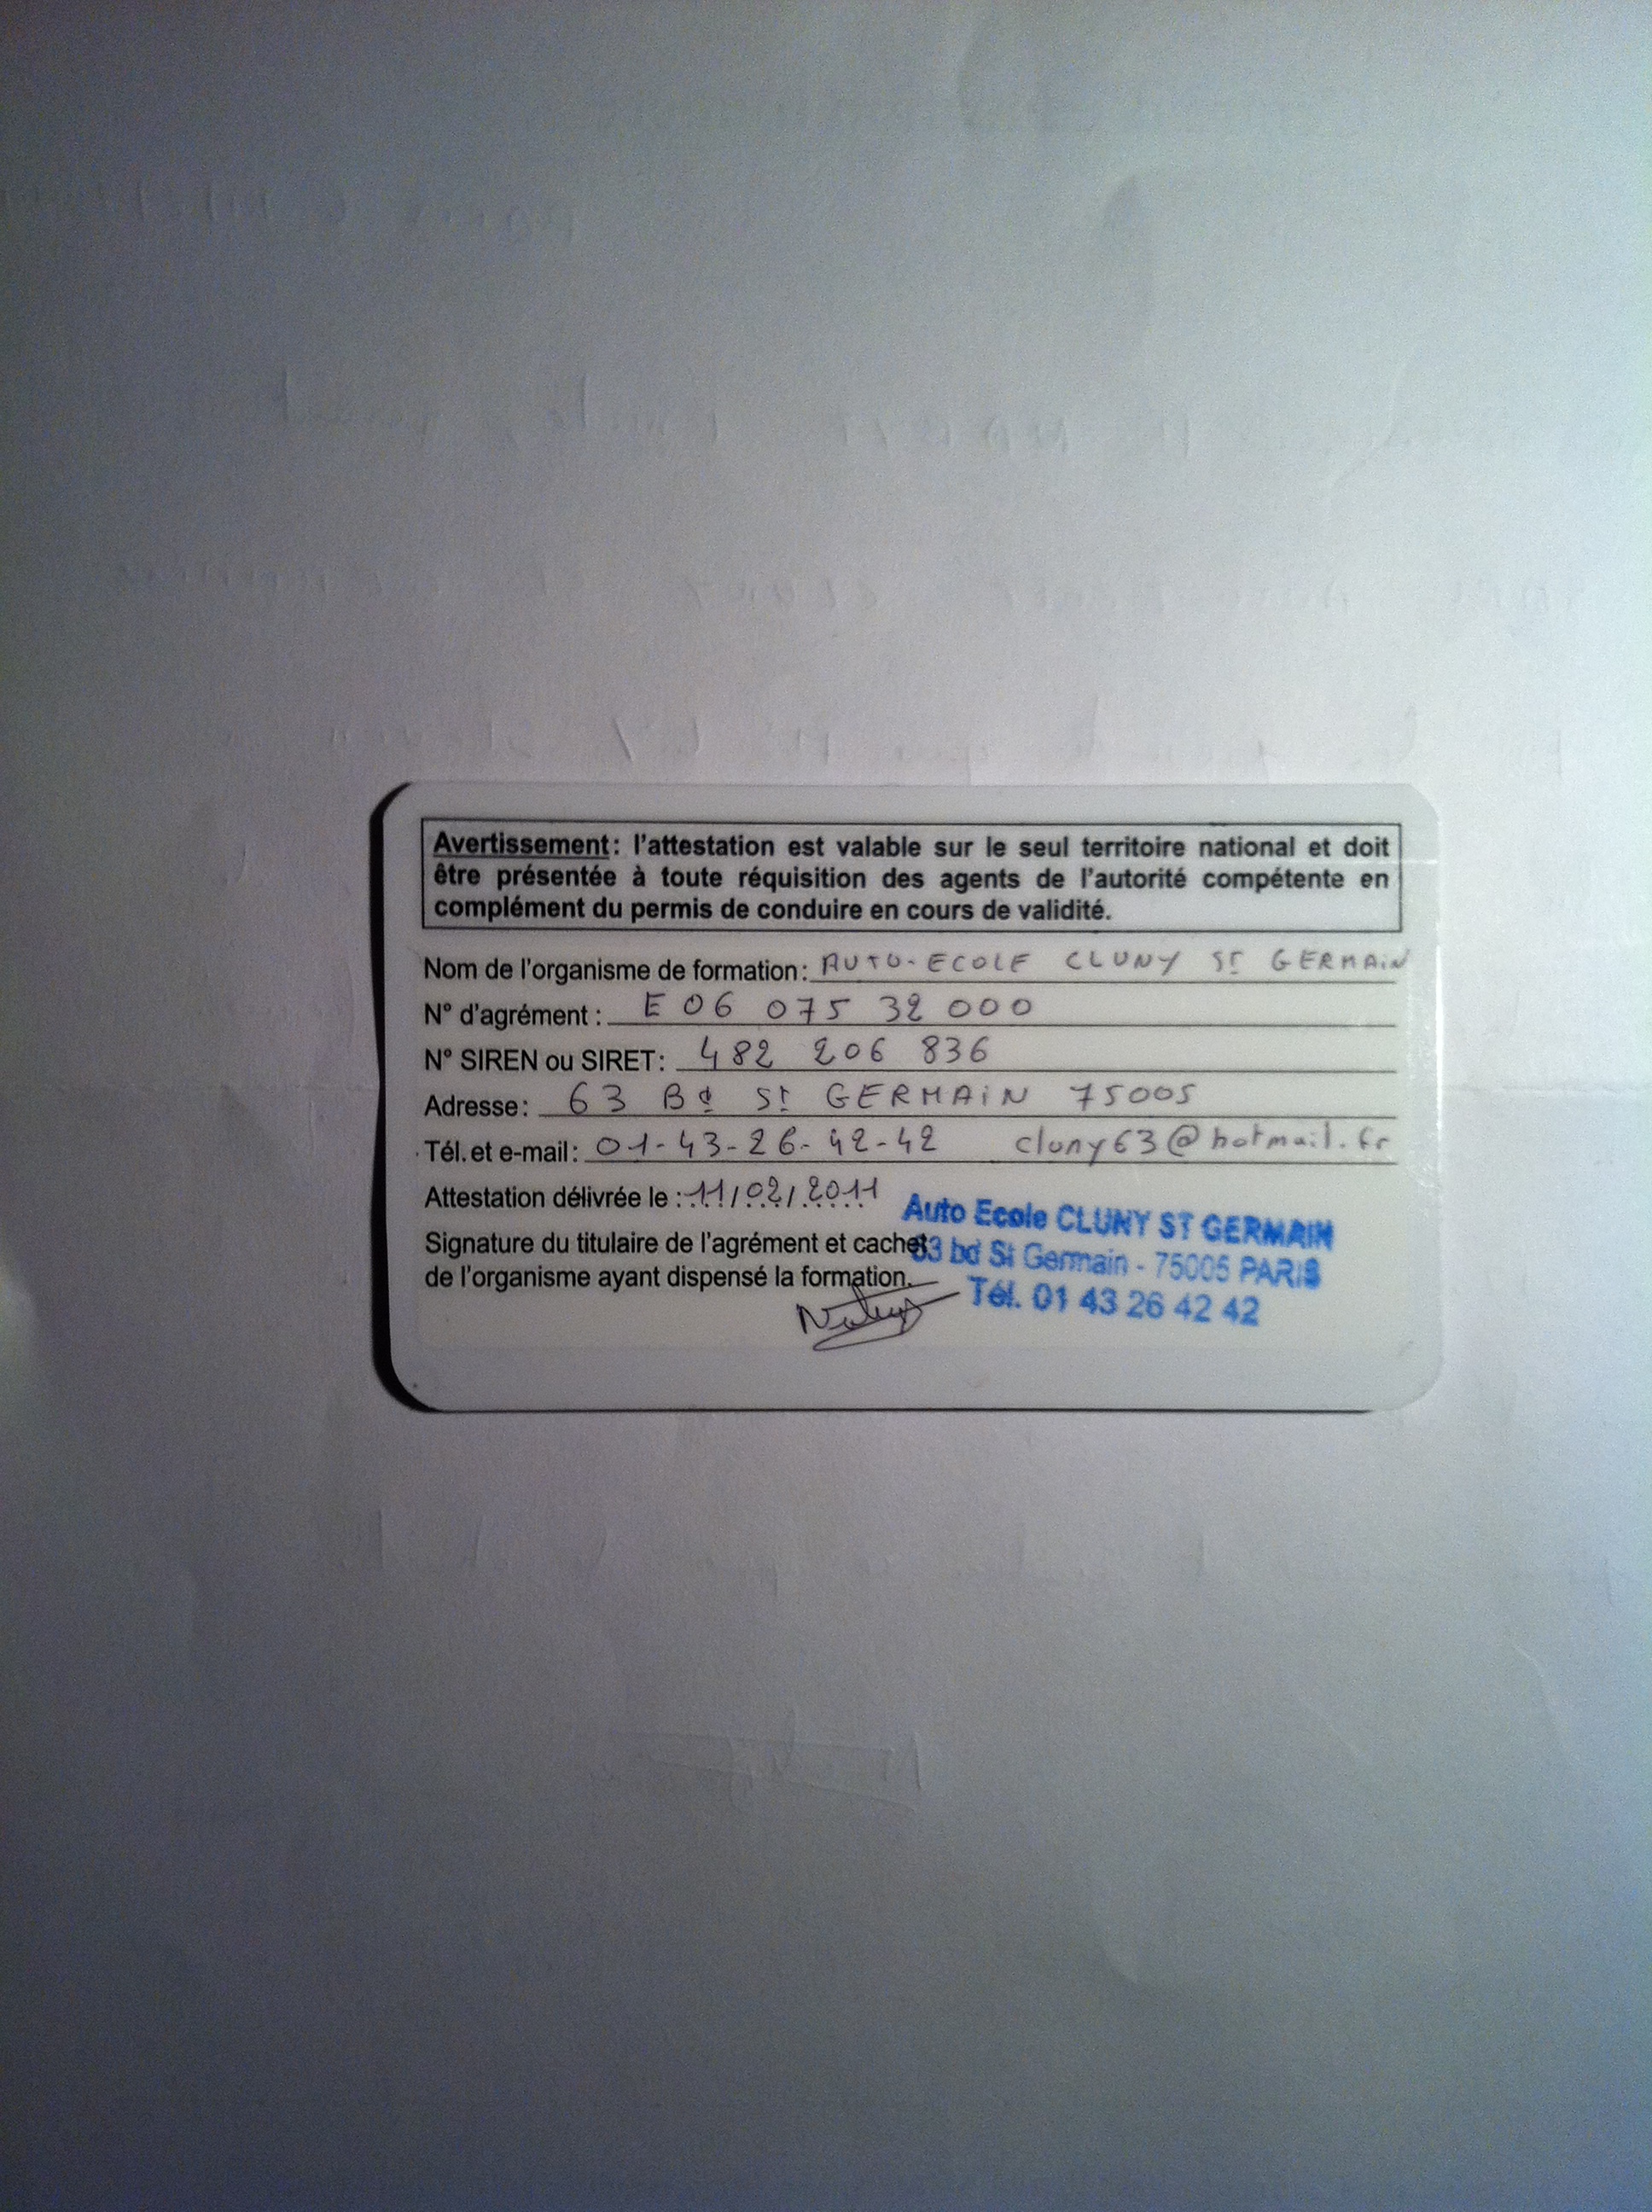 Avertissement : l'attestation est valable sur le seul territoire national et doit
être présentée à toute réquisition des agents de l'autorité compétente en
complément du permis de conduire en cours de validité.
Nom de l'organisme de formation : AUTO-ECOLE CLUNY St GERMAIN
N° d'agrément : E 06 075 32 000
N° SIREN ou SIRET : 482 206 836
Adresse : 63 Bd St GERMAIN 75005
Tél. et e-mail : 01-43-26-42-42 cluny63@hotmail.fr
Attestation délivrée le : 11/02/2011
Signature du titulaire de l'agrément et cachet
de l'organisme ayant dispensé la formation.
Auto Ecole CLUNY ST GERMAIN
63 bd St Germain - 75005 PARIS
Tél. 01 43 26 42 42